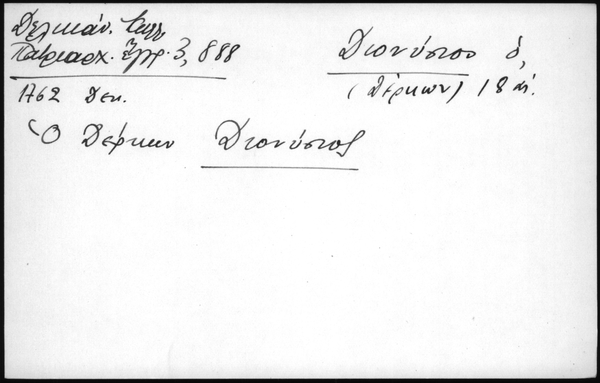 Δελικάν. Καλλ.
Πατριαρχ. Ἔγγρ. 3, 888
Διονύσιος
(Δέρκων) 18 αἰ.
1762 Δεκ.
Ὁ Δέρκων Διονύσιος